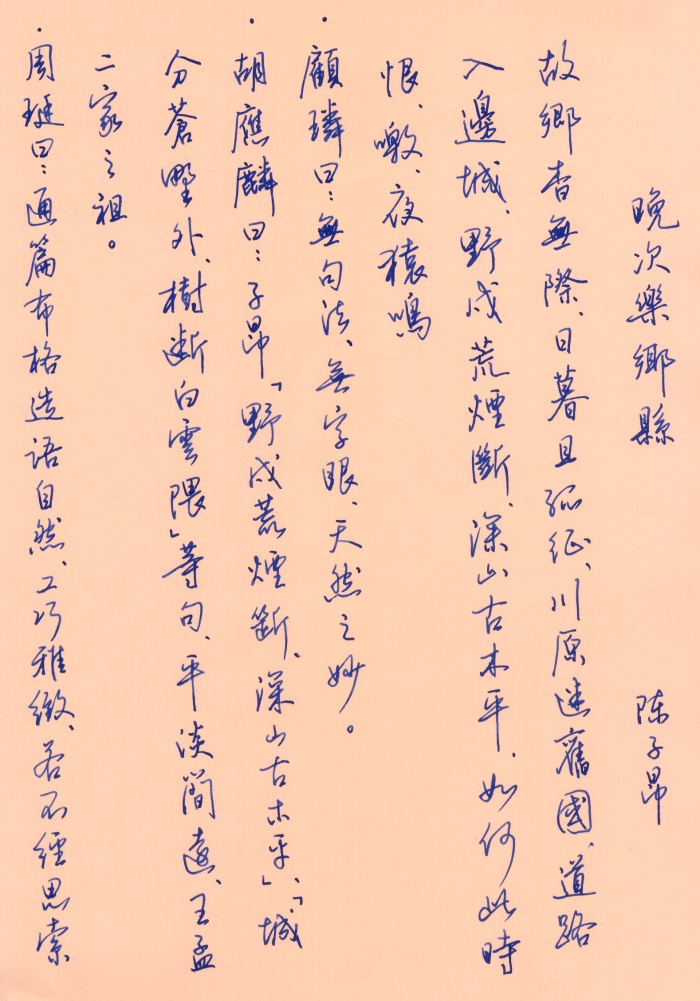 晚次樂鄉縣 陈子昂
故鄉杳無際、日暮且孤征、川原迷舊國、道路
入邊城、野戍荒煙斷、深山古木平、如何此時
恨、噭、夜猿鳴
·顧璘曰：無句法、無字眼、天然之妙。
·胡應麟曰：子昂「野戍荒煙斷、深山古木平」、「城
分蒼野外、樹断白雲隈」等句、平淡簡遠、王孟
二家之祖。
·周珽曰：通篇布格造語自然、工巧雅緻、若不經思索